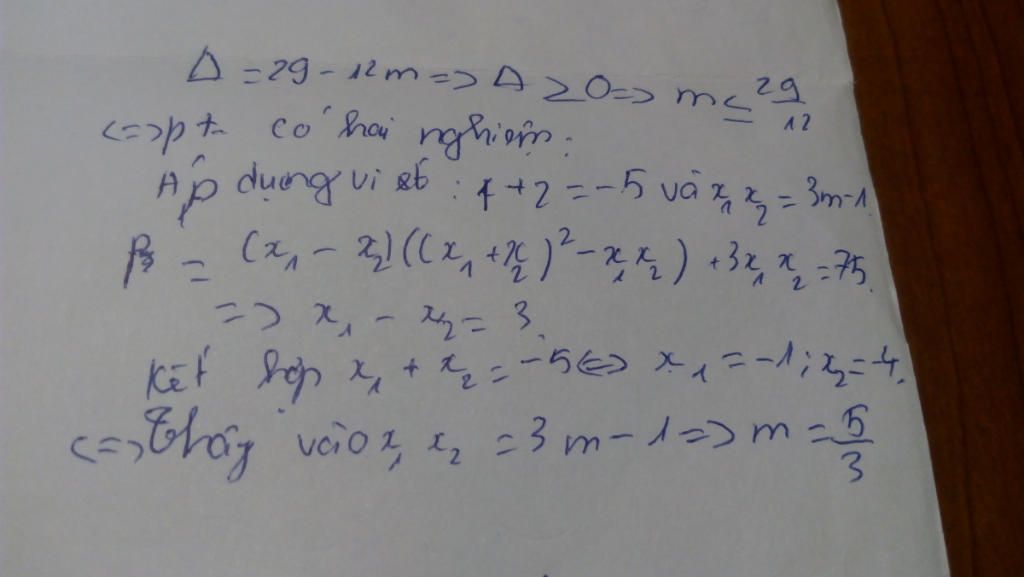 Δ = 29 - 12m => Δ ≥ 0 => m ≤ 29/12
<=> pt có hai nghiệm.
Áp dụng vi ét : 1 + 2 = -5 và x₁ x₂ = 3m-1.
= (x₁ - x₂)((x₁ + x₂)² - x₁x₂) + 3x₁ x₂ = 75.
=> x₁ - x₂ = 3.
Kết hợp x₁ + x₂ = -5 <=> x₁ = -1 ; x₂ = -4.
<=> Thây vào x₁ x₂ = 3m - 1 => m = 5/3